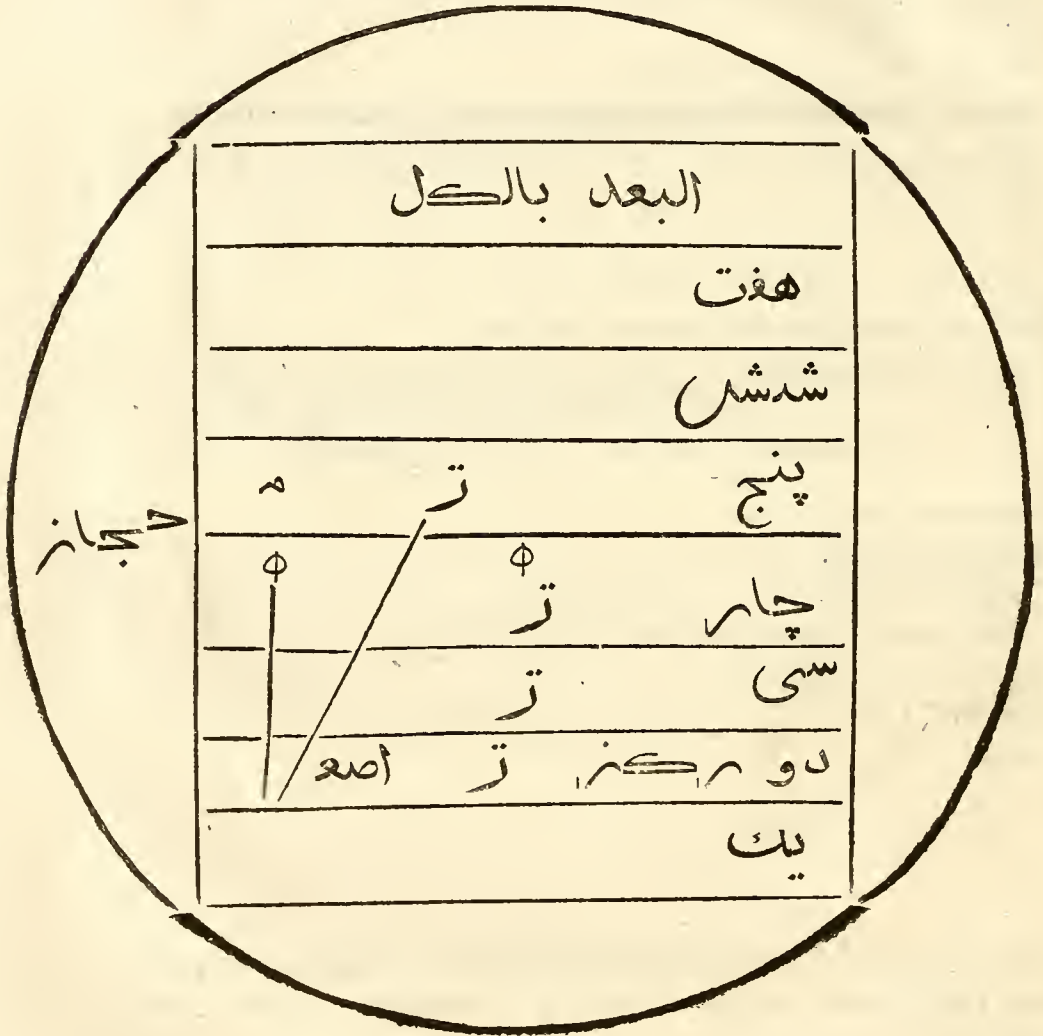 البعد بالكل
هفت
شش
پنج تر م
حجاز
چار تر
سى تر
دو ركز تر اصعد
يك